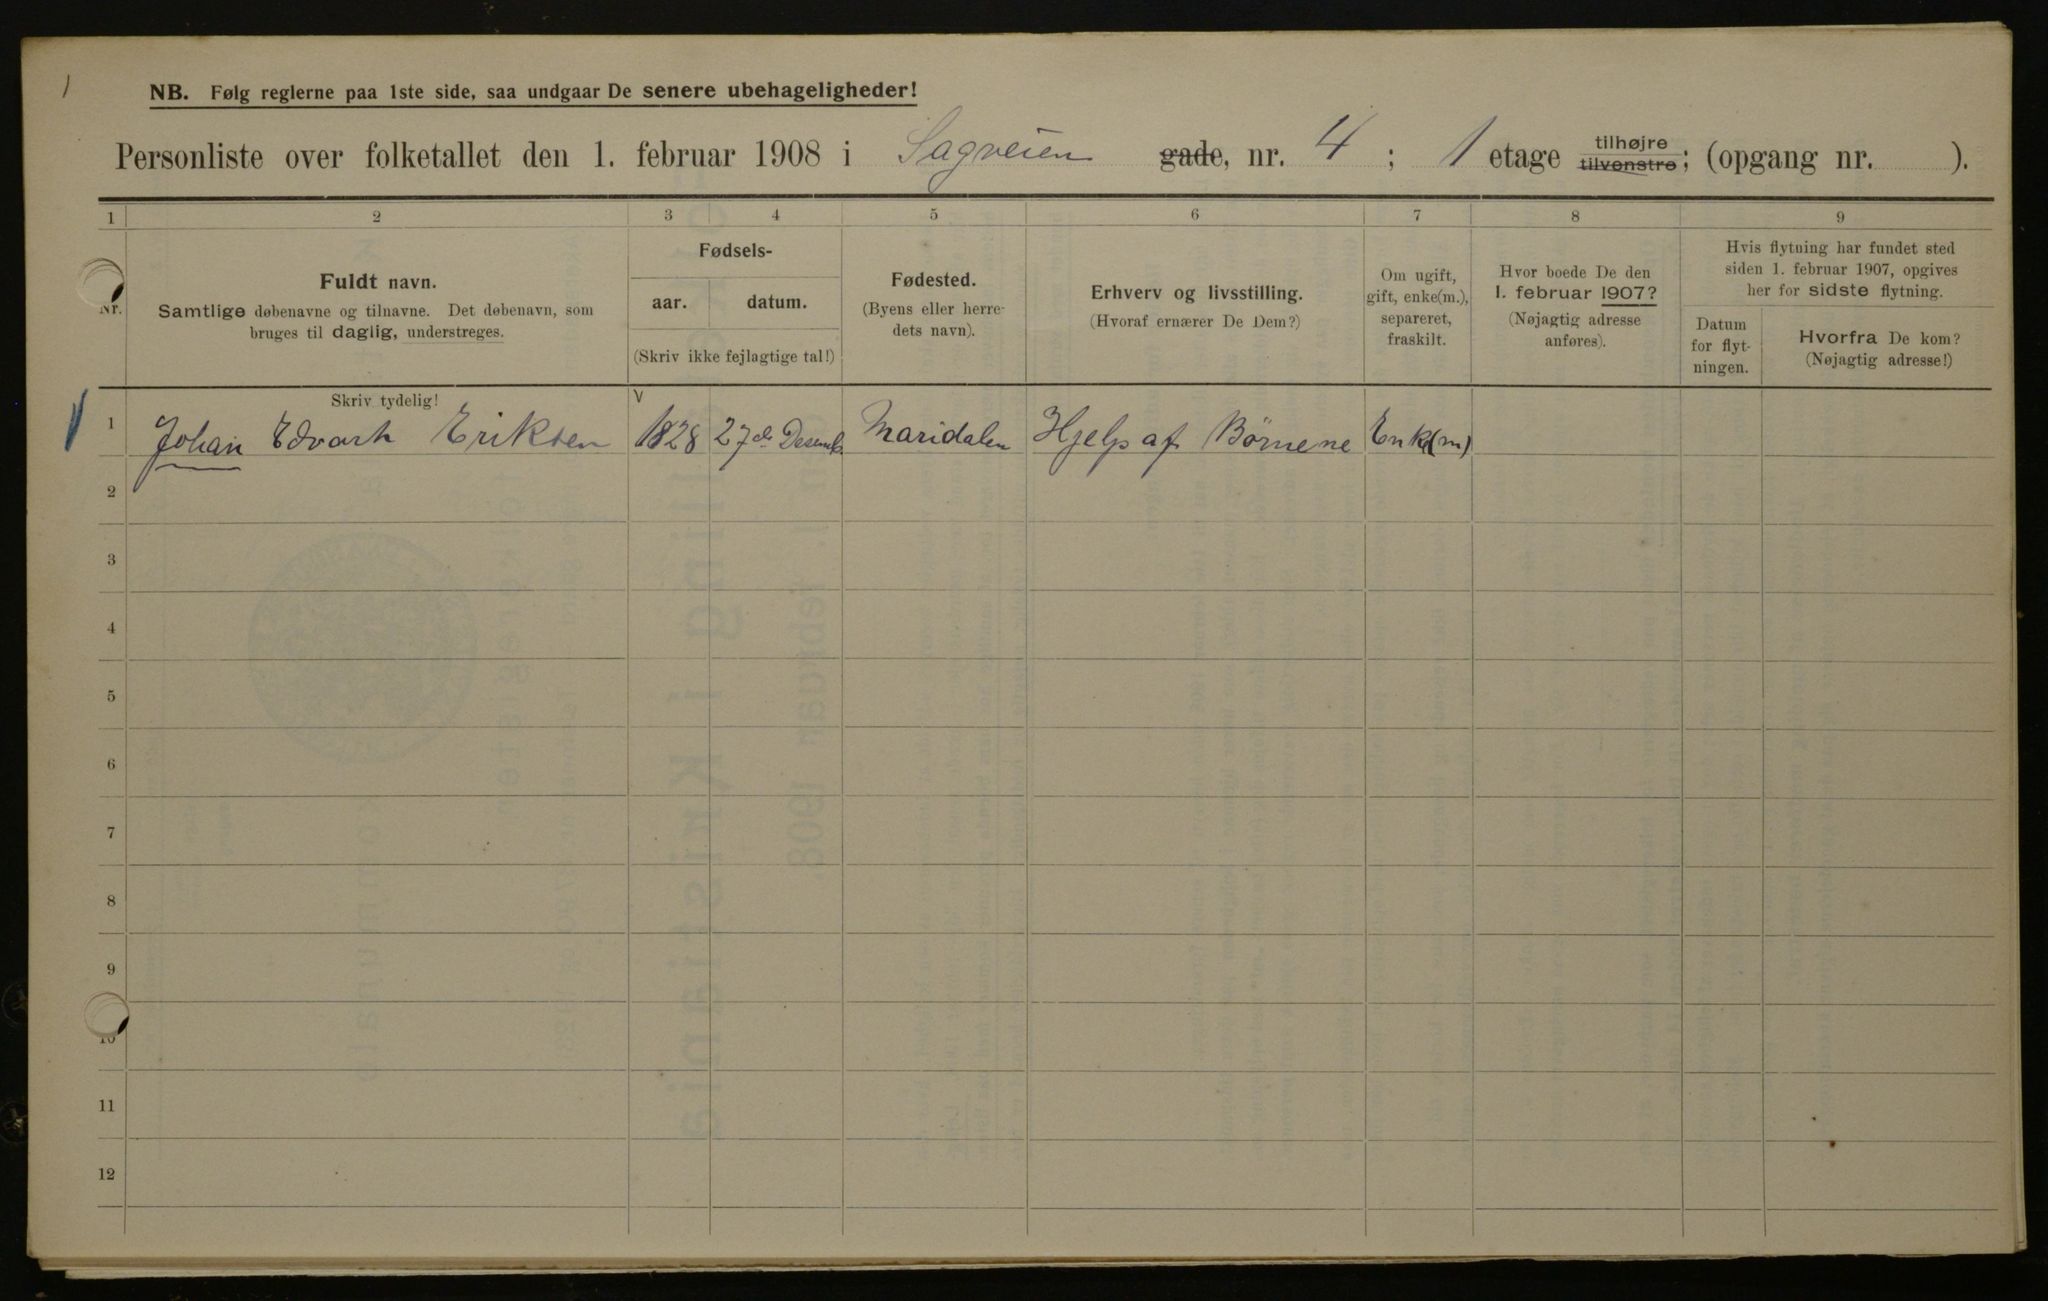 NB. Følg reglerne paa 1ste side, saa undgaar De senere ubehageligheder!
Personliste over folketallet den 1. februar 1908 i Sagveien gade, nr. 4 ; 1 etage tilhøjre tilvenstre; (opgang nr. ).
1 2 3 4 5 6 7 8 9
Nr.
Fuldt navn.
Samtlige døbenavne og tilnavne. Det døbenavn, som
bruges til daglig, understreges.
Fødsels-
aar. datum.
(Skriv ikke fejlagtige tal!)
Fødested.
(Byens eller herre-
dets navn).
Erhverv og livsstilling.
(Hvoraf ernærer De Dem?)
Om ugift,
gift, enke(m.),
separeret,
fraskilt.
Hvor boede De den
1. februar 1907?
(Nøjagtig adresse
anføres).
Hvis flytning har fundet sted
siden 1. februar 1907, opgives
her for sidste flytning.
Datum
for flyt-
ningen.
Hvorfra De kom?
(Nøjagtig adresse!)
Skriv tydelig!
1 Johan Edvart Eriksen 1828 27de Desemb. Maridalen Hjelp af Børnene Enk(m)
2
3
4
5
6
7
8
9
10
11
12